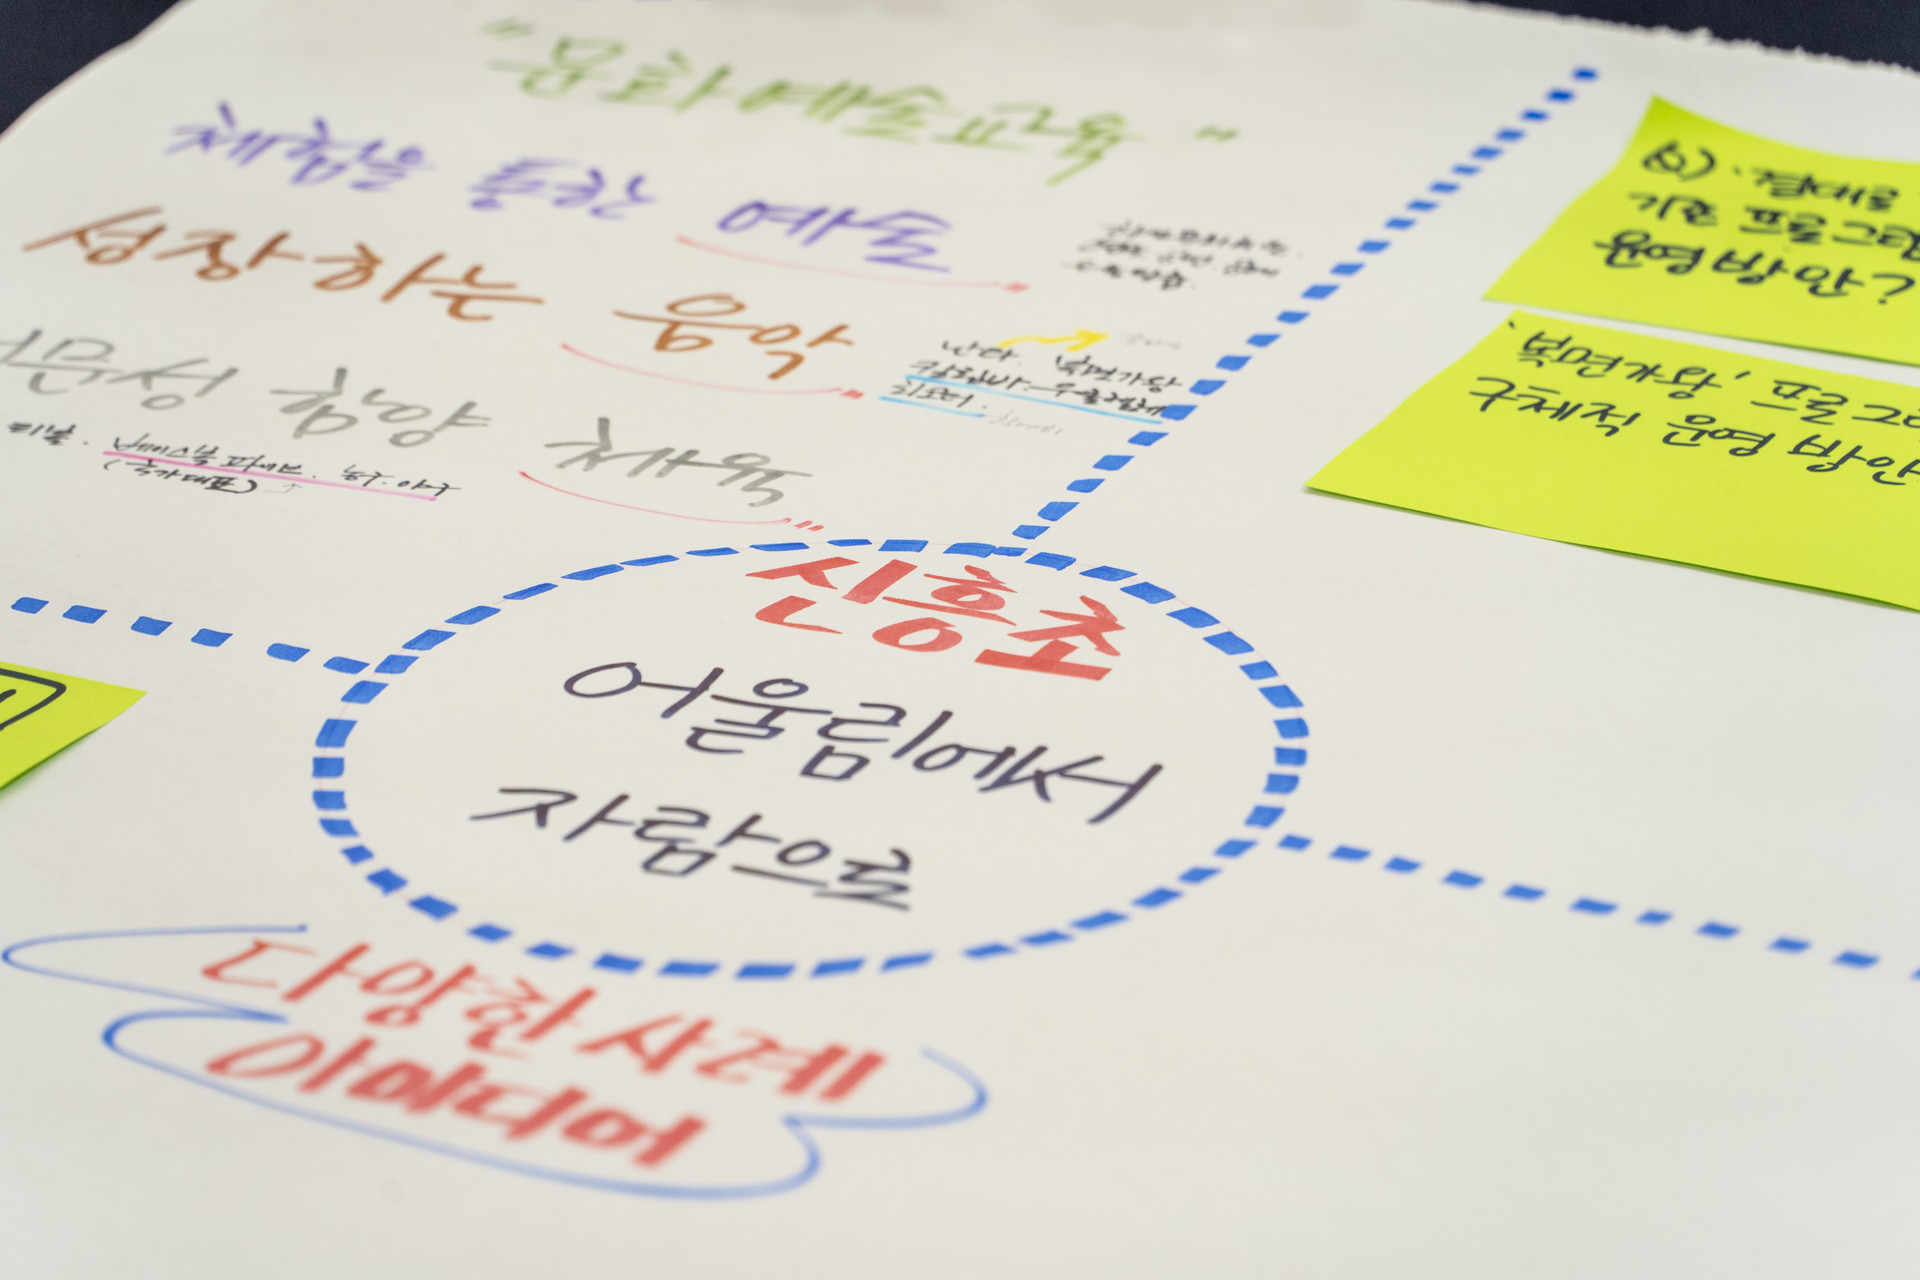 "문화예술교육"
체험을 통한 예술
성장하는 음악
난타. 복면가왕
칼림바. 우쿨렐레
인성 함양 체육
티볼. 베이스볼 파이브. 농구. 야구
(국가대표)
신흥초
어울림에서
자람으로
다양한 사례
아이디어
Q) · 절대로
기존 프로그램
운영 방안?
'복면가왕' 프로그
구체적 운영 방안